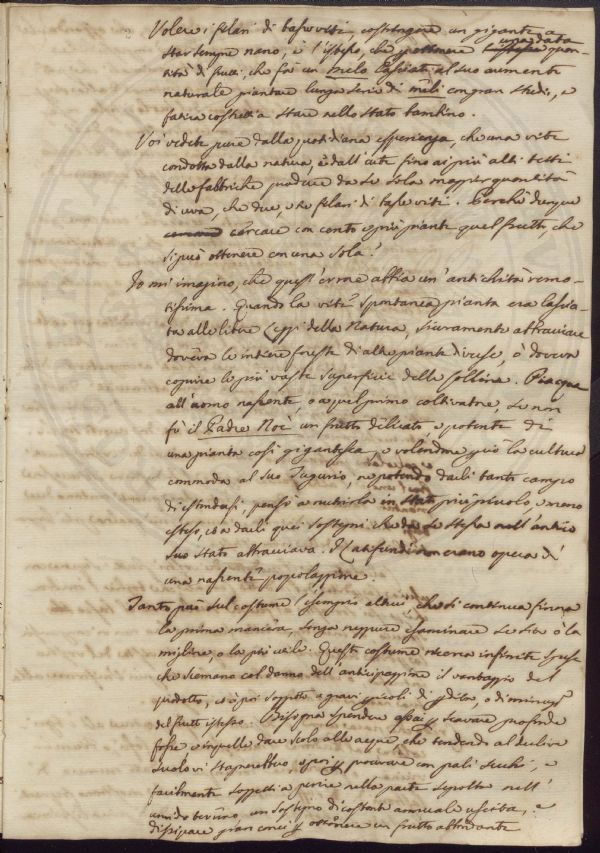 Volere i filari di basse viti, costringere un gigante a
star sempre nano, è l'istesso, che p ottenere una data quan-
tità di frutti, che fà un melo lasciato al suo aumento
naturale piantare lunga serie di meli con gran studio, e
fatica costretti a stare nello stato bambino.
Voi vedete pure dalla quotidiana esperienza, che una vite
condotta dalla natura, e dall'arte fino ai più alti tetti
delle fabbriche produce da se sola maggior quantità
di uva, che due, o tre filari di basse viti. Perchè dunque
cercare con cento e più piante quel frutto, che
si può ottenere con una sola?
Io mi imagino, che quest'errore abbia un'antichità remo-
tissima. Quando la vite spontanea pianta era lascia-
ta alle libere Leggi della Natura, sicuramente attraversare
doveva le intiere foreste di altre piante diverse, ò doveva
coprire le più vaste superficie delle Colline. Piacque
all'uomo nascente, o a quel primo coltivatore, se non
fù il Padre Noè un frutto delicato e potente di
una pianta così gigantesca, e volendone più la cultura
commoda al suo Tugurio, ne potendo darli tanto campo
di estendersi, pensò a nutrirla in stato più piccolo, e meno
esteso, o a darli quei sostegni che da se stessa nell'antico
suo stato attraversava. I Latifundi non erano opera di
una nascente popolazione.
Tanto può sul costume l'esempio altrui, che si continua finora
la prima maniera, senza neppure esaminare se sia ò la
migliore, o la più utile. Questo costume reca infinite spese
che scemano col danno dell'anticipazione il vantaggio del
prodotto, ed è poi soggetto a gravi pericoli di perdita, o diminuz
del frutto istesso. Bisogna spendere assai p scavare profonde
fosse e in quelle dare scolo alle acque, che tendendo al declive
suolo vi stagnerebbero, e poi p procurare con pali secchi, e
facilmente soggetti a perire nella parte sepolta nell'
umido terreno, un sostegno di costante annuale uscita, e
dissipare gran conci p ottenere un frutto abbondante